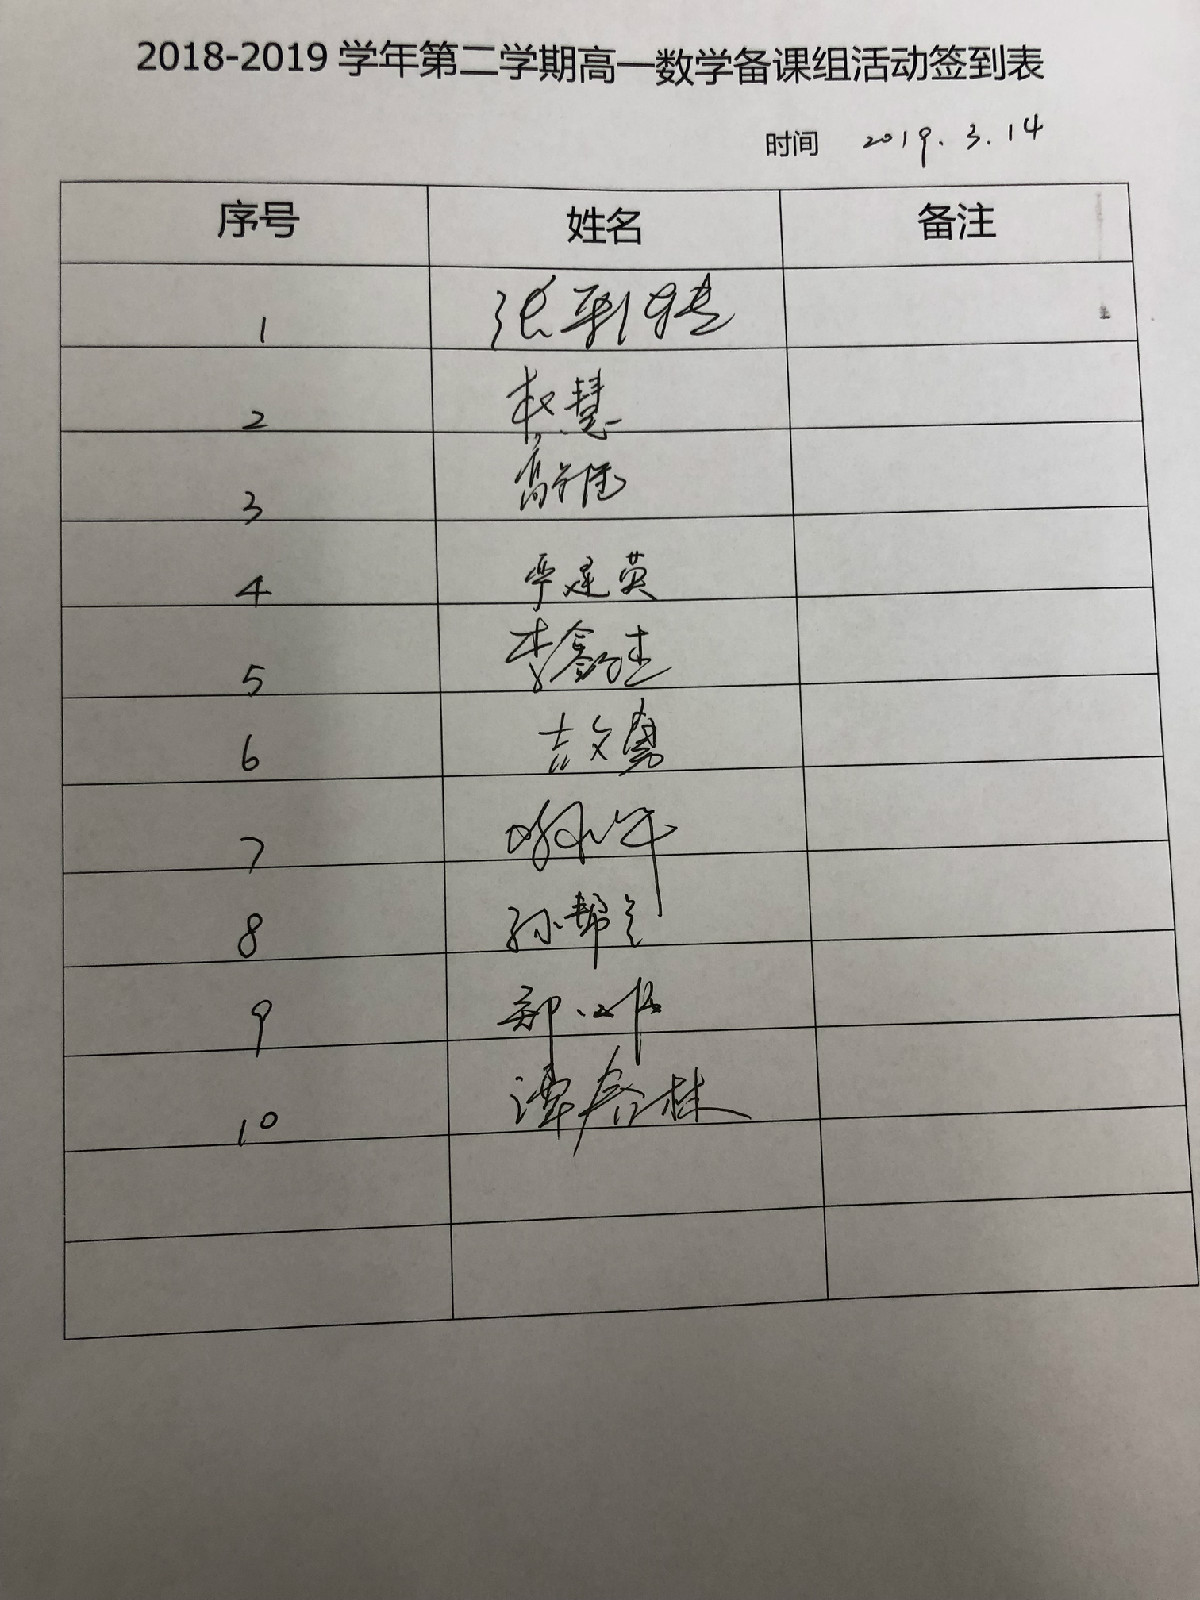 2018-2019 学年第二学期高一数学备课组活动签到表
时间 2019.3.14
序号 姓名 备注
1 张
2 权慧
3 高
4 严建英
5 李鑫
6 吉文勇
7
8 孙帮
9 郑
10 谭春林